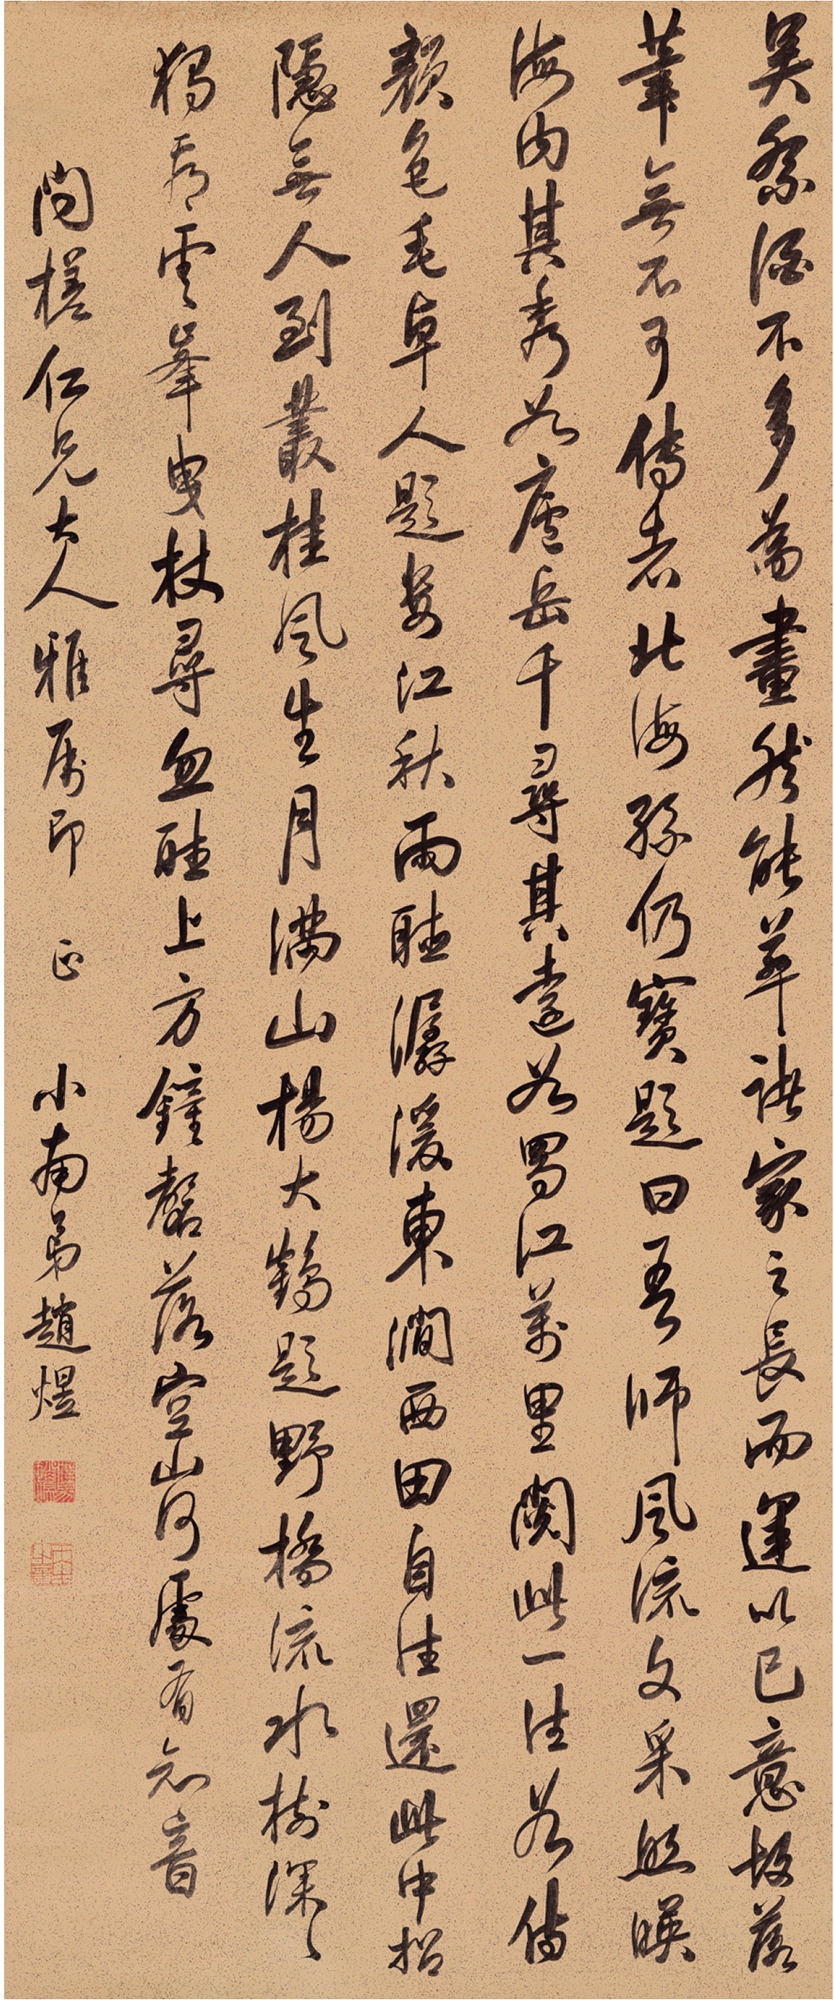 吳祭酒不多為畫然能萃諸家之長而運以己意故落
筆無不可傳者北海孫仍寶題曰吾師風流文采照映
海內其秀如廬岳千尋其遠如蜀江萬里閱此一往如傳
顏色毛卓人題婁江秋雨聽潺湲東澗西田自往還此中招
隱無人到叢桂風生月滿山楊大鶴題野橋流水樹深〻
獨看雲峯曳杖尋血聽上方鐘磬落空山何處有知音
問槎仁兄大人雅屬即 正 小南弟趙煜